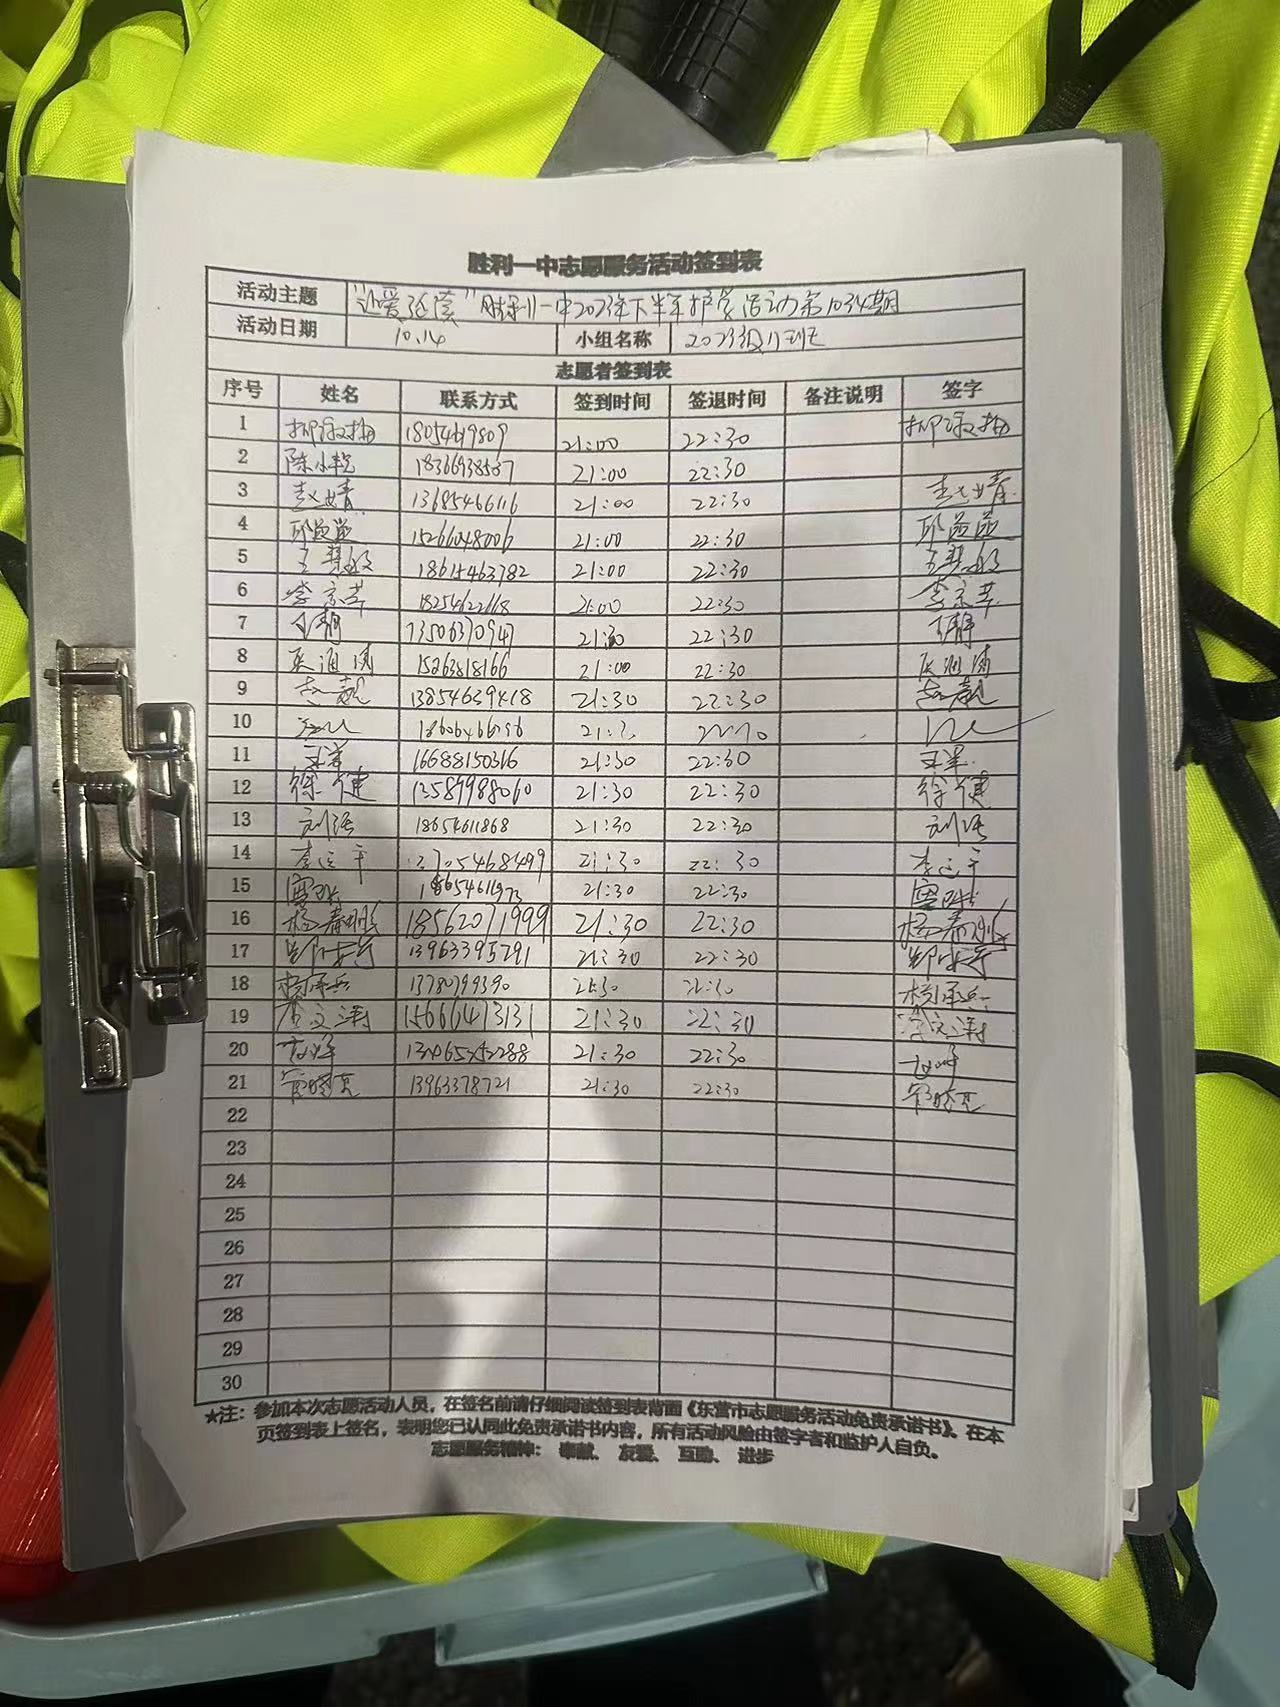 胜利一中志愿服务活动签到表
活动主题 "让爱延蔓"胜利一中2023年下半年护学活动第1034期
活动日期 10.14 小组名称 2023级11班
志愿者签到表
序号 姓名 联系方式 签到时间 签退时间 备注说明 签字
1 1805469809 21:00 22:30
2 陈小艳 18366938537 21:00 22:30
3 13685466116 21:00 22:30
4 邱益益 15266048006 21:00 22:30 邱益益
5 18615463782 21:00 22:30
6 李京苹 18254622118 21:00 22:30 李京苹
7 13506370947 21:30 22:30 王静
8 15263818166 21:00 22:30
9 赵靓 13854639418 21:30 22:30 赵靓
10
11 16688150316 21:30 22:30
12 徐健 13589988060 21:30 22:30 徐健
13 刘语 18654611868 21:30 22:30 刘语
14 13705468499 21:30 22:30
15 21:30 22:30
16 杨春鹏 18562071999 21:30 22:30 杨春鹏
17 13963395791 21:30 22:30
18 1378079390 21:30 22:30
19 15666473131 21:30 22:30
20 21:30 22:30
21 管晓亮 13963378721 21:30 22:30 管晓亮
22
23
24
25
26
27
28
29
30
★注：参加本次志愿活动人员，在签名前请仔细阅读签到表背面《东营市志愿服务活动免责承诺书》。在本
页签到表上签名，表明您已认同此免责承诺书内容，所有活动风险由签字者和监护人自负。
志愿服务精神： 奉献、 友爱、 互助、 进步